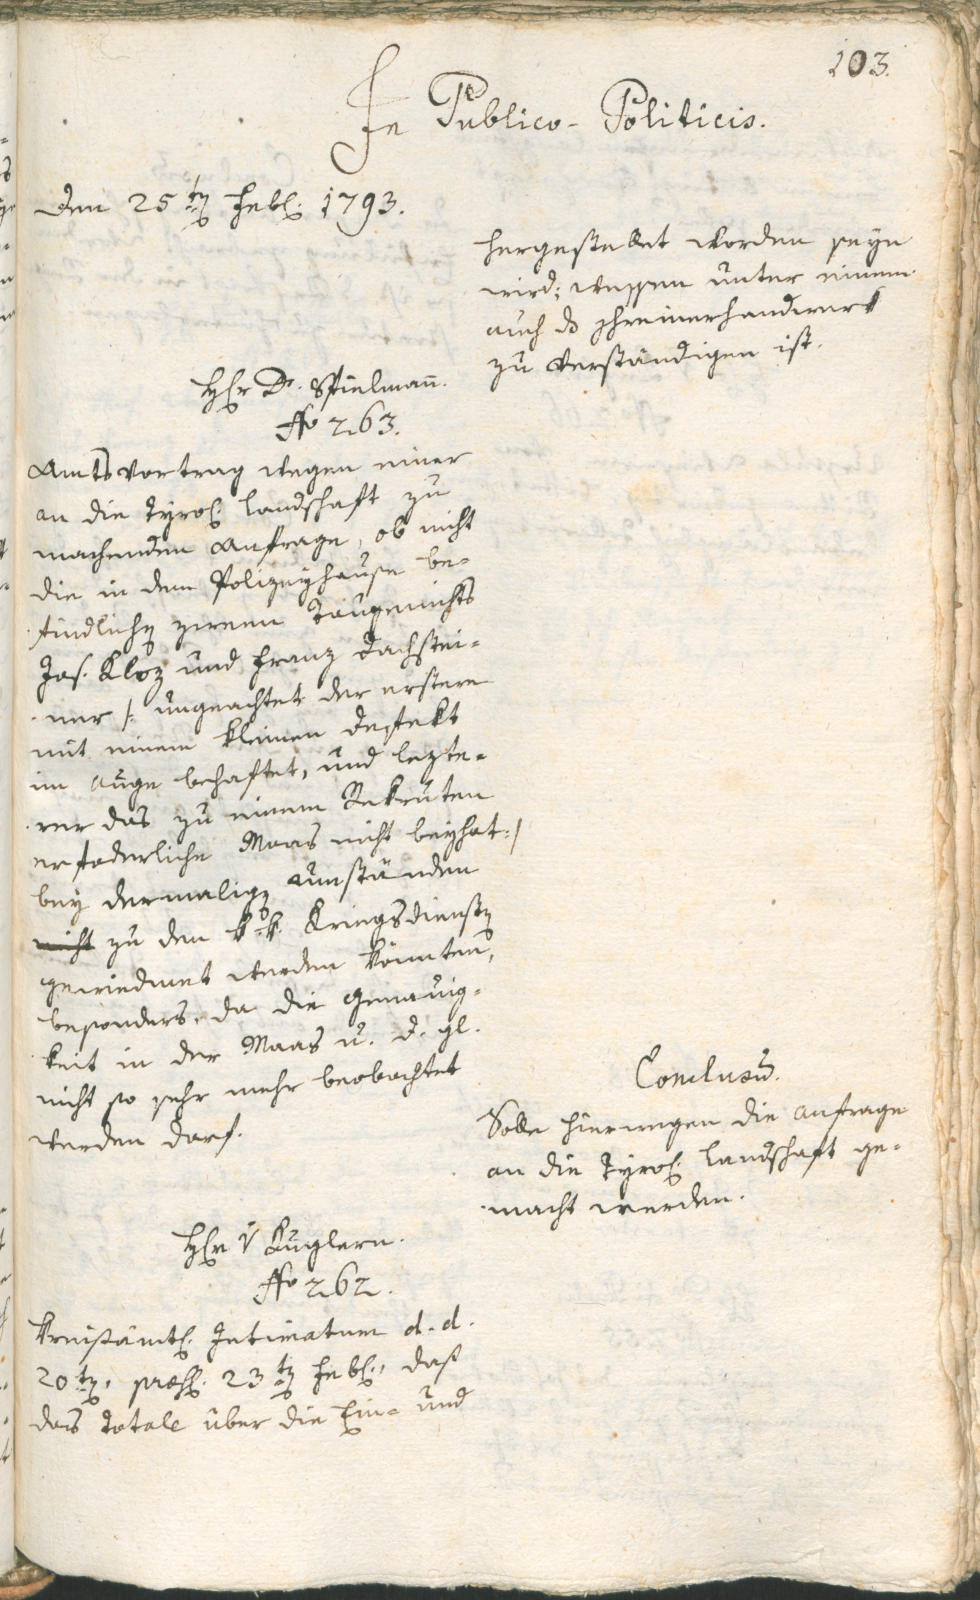 103.
In Publico-Politicis.
Den 25ten Febr. 1793.
hergestellet worden seyn
wird; wessen unter einem
auch das Schreinerhandwerk
zu verständigen ist.
Herr Dr. Spielmann.
No 263.
Amtsvortrag wegen einer
an die Tyrol. Landschaft zu
machenden Anfrage, ob nicht
die in dem Polizeyhause be-
findlichen zween Taugenichts
Jos. Kloz und Franz Dachstei-
ner /: ungeachtet der erstere
mit einem kleinen Defekt
im Auge behaftet, und lezte-
rer das zu einem Rekruten
erfoderliche Maas nicht beyhat :/
bey dermaligen Umständen
nicht zu den k. k. Kriegsdiensten
gewiedmet werden könnten,
besonders, da die Genauig-
keit in der Maas u. d. gl.
nicht so sehr mehr beobachtet
werden darf.
Conclusum.
Solle hierwegen die Anfrage
an die Tyrol. Landschaft ge-
macht werden.
Herr v Kuglern.
No 262.
Kreisämtl. Intimatum d. d.
20ten, præs. 23ten Febr., daß
das Totale über die Ein- und